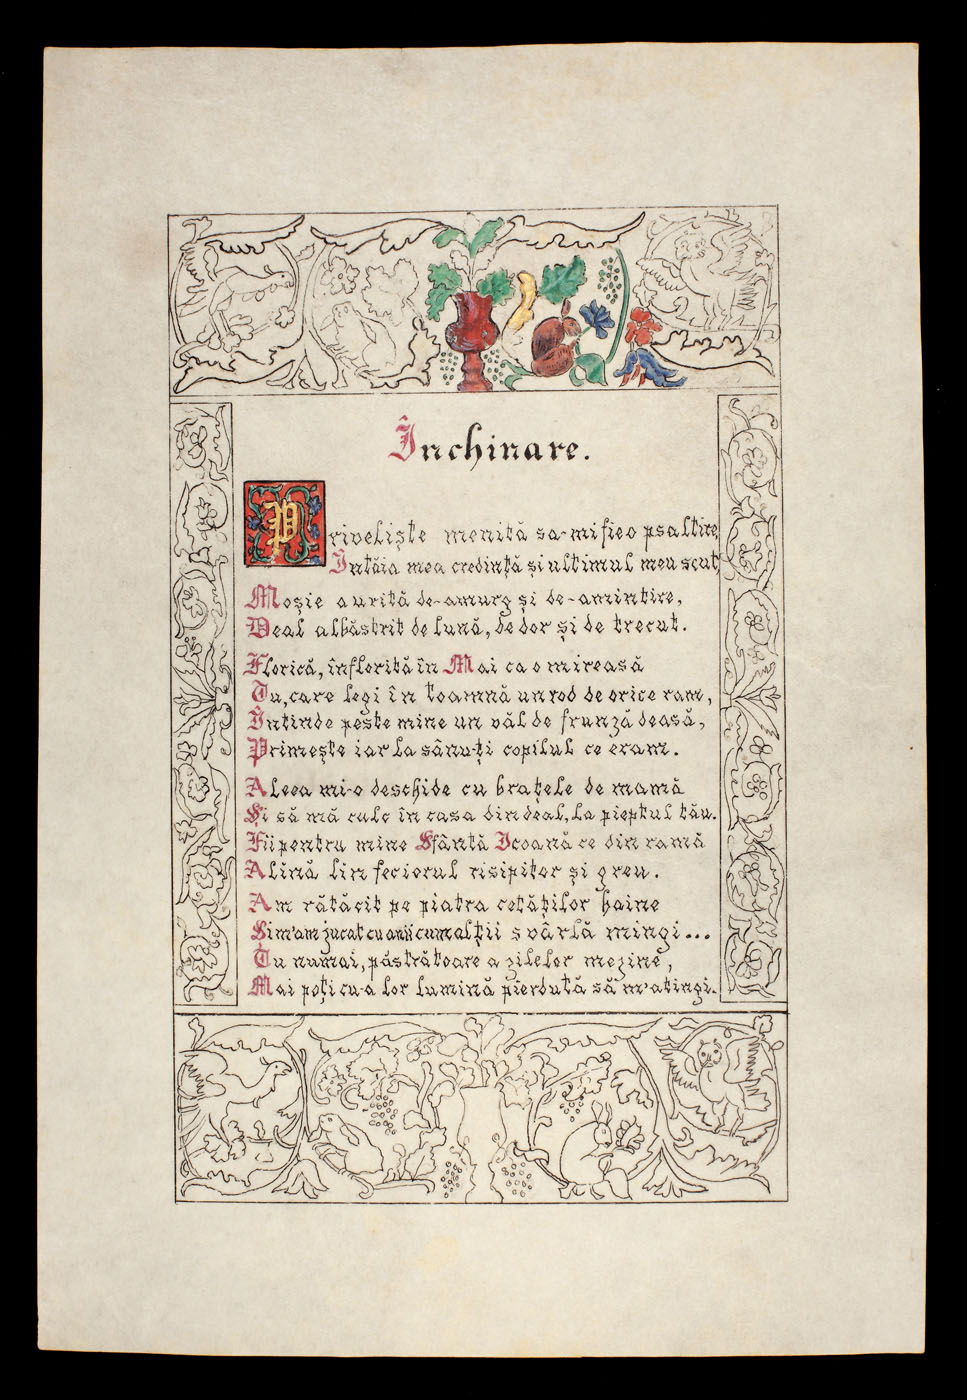 Închinare.
Priveliște menită sa-mi fie o psaltire,
Întăia mea credință și ultimul meu scut
Moșie aurită de-amurg și de-amintire,
Deal albăstrit de lună, de dor și de trecut.
Florică, înflorită în Mai ca o mireasă
Tu, care legi în toamnă un rod de orice ram,
Întinde peste mine un văl de frunză deasă,
Primește iar la sânu-ți copilul ce eram.
Aleea mi-o deschide cu brațele de mamă
Și să mă culc în casa din deal, la pieptul tău.
Fii pentru mine Sfântă Icoană ce din ramă
Alină lin feciorul risipitor și greu.
Am rătăcit pe piatra cetăților haine
Și m'am jucat cu anii cum alții svârlă mingi...
Tu numai, păstrătoare a zilelor mezine,
Mai poți cu-a lor lumină pierdută să m'atingi.